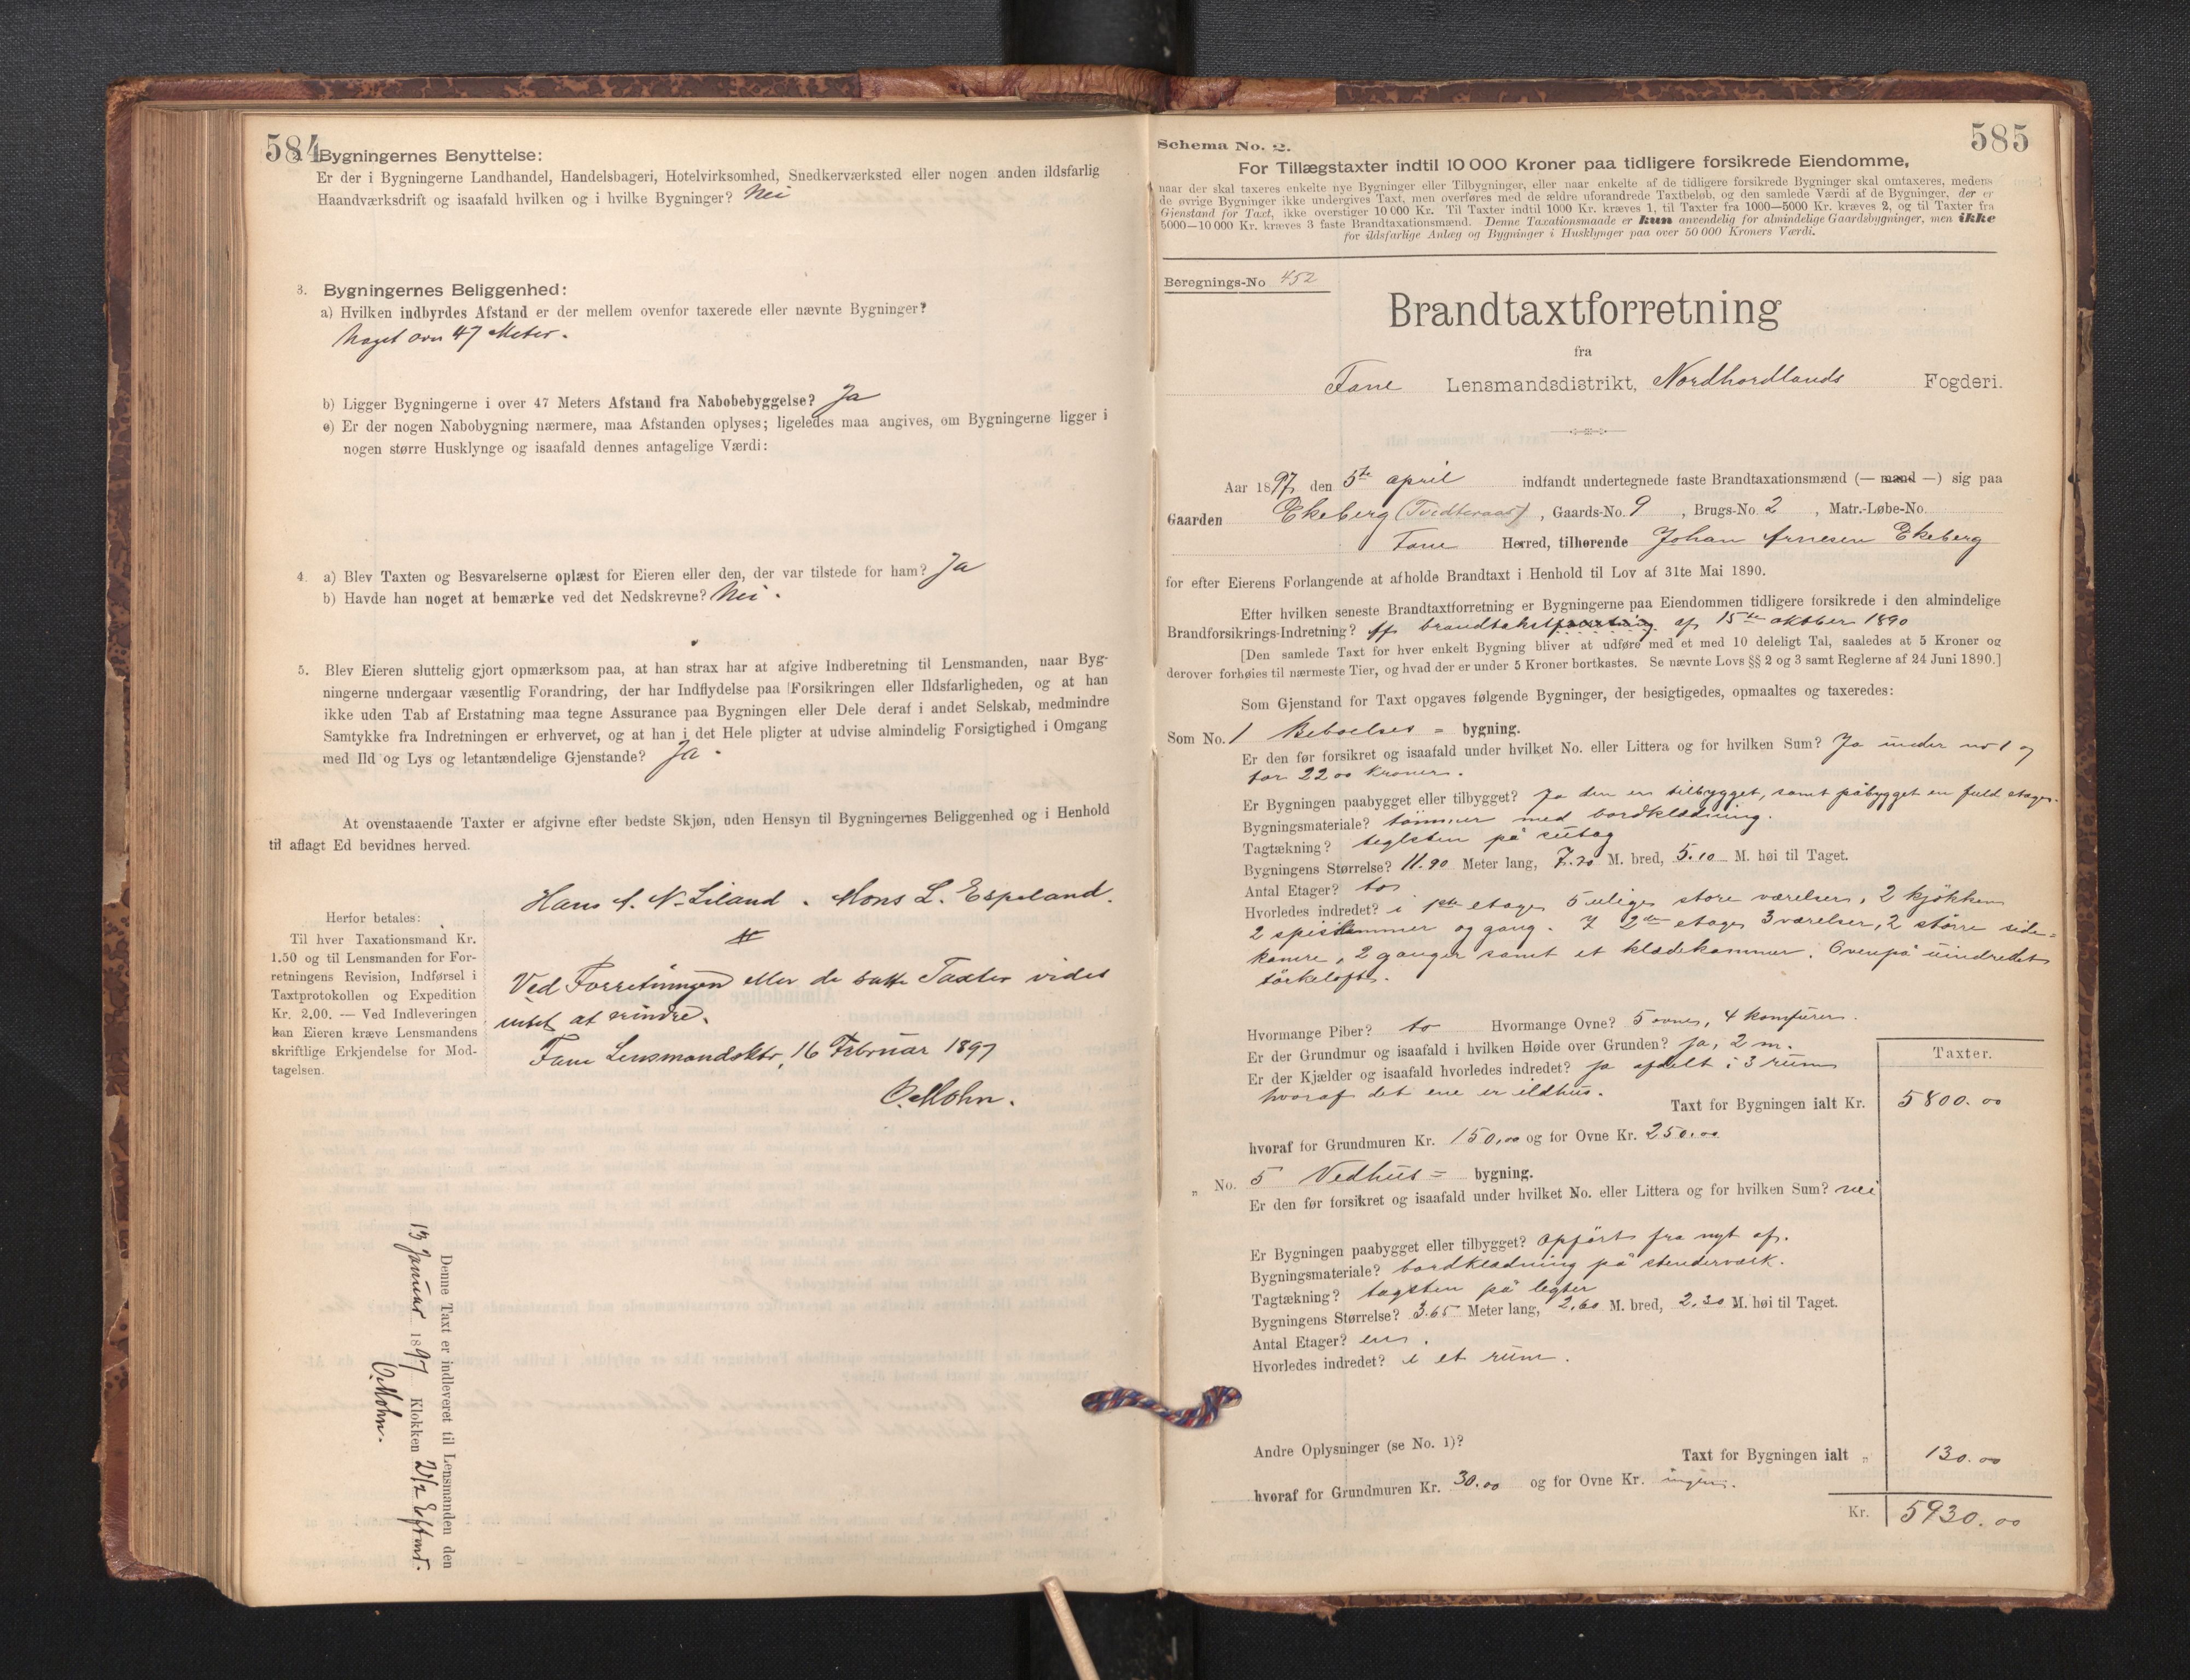 584
2. Bygningernes Benyttelse:
Er der i Bygningerne Landhandel, Handelsbageri, Hotelvirksomhed, Snedkerværksted eller nogen anden ildsfarlig
Haandværksdrift og isaafald hvilken og i hvilke Bygninger? Nei
3. Bygningernes Beliggenhed:
a) Hvilken indbyrdes Afstand er der mellem ovenfor taxerede eller nævnte Bygninger?
Noget over 47 Meter.
b) Ligger Bygningerne i over 47 Meters Afstand fra Nabobebyggelse? Ja
c) Er der nogen Nabobygning nærmere, maa Afstanden oplyses; ligeledes maa angives, om Bygningerne ligger i
nogen større Husklynge og isaafald dennes antagelige Værdi:
4. a) Blev Taxten og Besvarelserne oplæst for Eieren eller den, der var tilstede for ham? Ja
b) Havde han noget at bemærke ved det Nedskrevne? Nei.
5. Blev Eieren sluttelig gjort opmærksom paa, at han strax har at afgive Indberetning til Lensmanden, naar Byg-
ningerne undergaar væsentlig Forandring, der har Indflydelse paa Forsikringen eller Ildsfarligheden, og at han
ikke uden Tab af Erstatning maa tegne Assurance paa Bygningen eller Dele deraf i andet Selskab, medmindre
Samtykke fra Indretningen er erhvervet, og at han i det Hele pligter at udvise almindelig Forsigtighed i Omgang
med Ild og Lys og letantændelige Gjenstande? Ja.
At ovenstaaende Taxter er afgivne efter bedste Skjøn, uden Hensyn til Bygningernes Beliggenhed og i Henhold
til aflagt Ed bevidnes herved.
Hans A. N. Liland. Mons L. Espeland.
Herfor betales:
Til hver Taxationsmand Kr.
1.50 og til Lensmanden for For-
retningens Revision, Indførsel i
Taxtprotokollen og Expedition
Kr. 2.00. — Ved Indleveringen
kan Eieren kræve Lensmandens
skriftlige Erkjendelse for Mod-
tagelsen.
Ved Forretningen eller de satte Taxter vides
intet at erindre.
Fane Lensmandsktr, 16 Februar 1897
O. Mohn.
Denne Taxt er indleveret til Lensmanden den
13 Januar 1897 Klokken 2 1/2 Efterm.
O. Mohn.
585
Schema No. 2.
For Tillægstaxter indtil 10 000 Kroner paa tidligere forsikrede Eiendomme,
naar der skal taxeres enkelte nye Bygninger eller Tilbygninger, eller naar enkelte af de tidligere forsikrede Bygninger skal omtaxeres, medens
de øvrige Bygninger ikke undergives Taxt, men overføres med de ældre uforandrede Taxtbeløb, og den samlede Værdi af de Bygninger, der er
Gjenstand for Taxt, ikke overstiger 10 000 Kr. Til Taxter indtil 1000 Kr. kræves 1, til Taxter fra 1000—5000 Kr. kræves 2, og til Taxter fra
5000—10 000 Kr. kræves 3 faste Brandtaxationsmænd. Denne Taxationsmaade er kun anvendelig for almindelige Gaardsbygninger, men ikke
for ildsfarlige Anlæg og Bygninger i Husklynger paa over 50 000 Kroners Værdi.
Beregnings-No 452
Brandtaxtforretning
fra
Fane Lensmandsdistrikt, Nordhordlands Fogderi.
Aar 1897, den 5te april indfandt undertegnede faste Brandtaxationsmænd (— mand —) sig paa
Gaarden Ekeberg (Tvedteraas), Gaards-No. 9, Brugs-No. 2, Matr.-Løbe-No.
Fane Herred, tilhørende Johan Arnesen Ekeberg
for efter Eierens Forlangende at afholde Brandtaxt i Henhold til Lov af 31te Mai 1890.
Efter hvilken seneste Brandtaxtforretning er Bygningerne paa Eiendommen tidligere forsikrede i den almindelige
Brandforsikrings-Indretning? af 15te oktober 1890
[Den samlede Taxt for hver enkelt Bygning bliver at udføre med et med 10 deleligt Tal, saaledes at 5 Kroner og
derover forhøies til nærmeste Tier, og hvad der er under 5 Kroner bortkastes. Se nævnte Lovs §§ 2 og 3 samt Reglerne af 24 Juni 1890.]
Som Gjenstand for Taxt opgaves følgende Bygninger, der besigtigedes, opmaaltes og taxeredes:
Som No. 1 Beboelses = bygning.
Er den før forsikret og isaafald under hvilket No. eller Littera og for hvilken Sum? Ja under no 1 og
for 2200 kroner.
Er Bygningen paabygget eller tilbygget? Ja den er tilbygget, samt påbygget en fuld etage.
Bygningsmateriale? tømmer med bordklædning.
Tagtækning? teglsten på sutag
Bygningens Størrelse? 11.90 Meter lang, 7.20 M. bred, 5.10 M. høi til Taget.
Antal Etager? to
Hvorledes indredet? i 1ste etage 5 ulige store værelser, 2 kjøkken
2 spiskammer og gang. I 2den etage 3 værelser, 2 større side=
kamre, 2 ganger samt et klædekammer. Ovenpå uindredet
törkeloft.
Hvormange Piber? to Hvormange Ovne? 5 ovne, 4 komfurer.
Er der Grundmur og isaafald i hvilken Høide over Grunden? Ja, 2 m.
Er der Kjælder og isaafald hvorledes indredet? Ja afdelt i 3 rum
hvoraf det ene er ildhus.
Taxter.
Taxt for Bygningen ialt Kr. 5800.00
hvoraf for Grundmuren Kr. 150.00 og for Ovne Kr. 250.00
„ No. 5 Vedhus = bygning.
Er den før forsikret og isaafald under hvilket No. eller Littera og for hvilken Sum? nei
Er Bygningen paabygget eller tilbygget? Opført fra nyt af.
Bygningsmateriale? bordklædning på stenderværk.
Tagtækning? tagsten på legter
Bygningens Størrelse? 3.65 Meter lang, 2.60 M. bred, 2.30 M. høi til Taget.
Antal Etager? en.
Hvorledes indredet? i et rum.
Andre Oplysninger (se No. 1)?
Taxt for Bygningen ialt „ 130.00
hvoraf for Grundmuren Kr. 30.00 og for Ovne Kr. ingen.
Kr. 5930.00